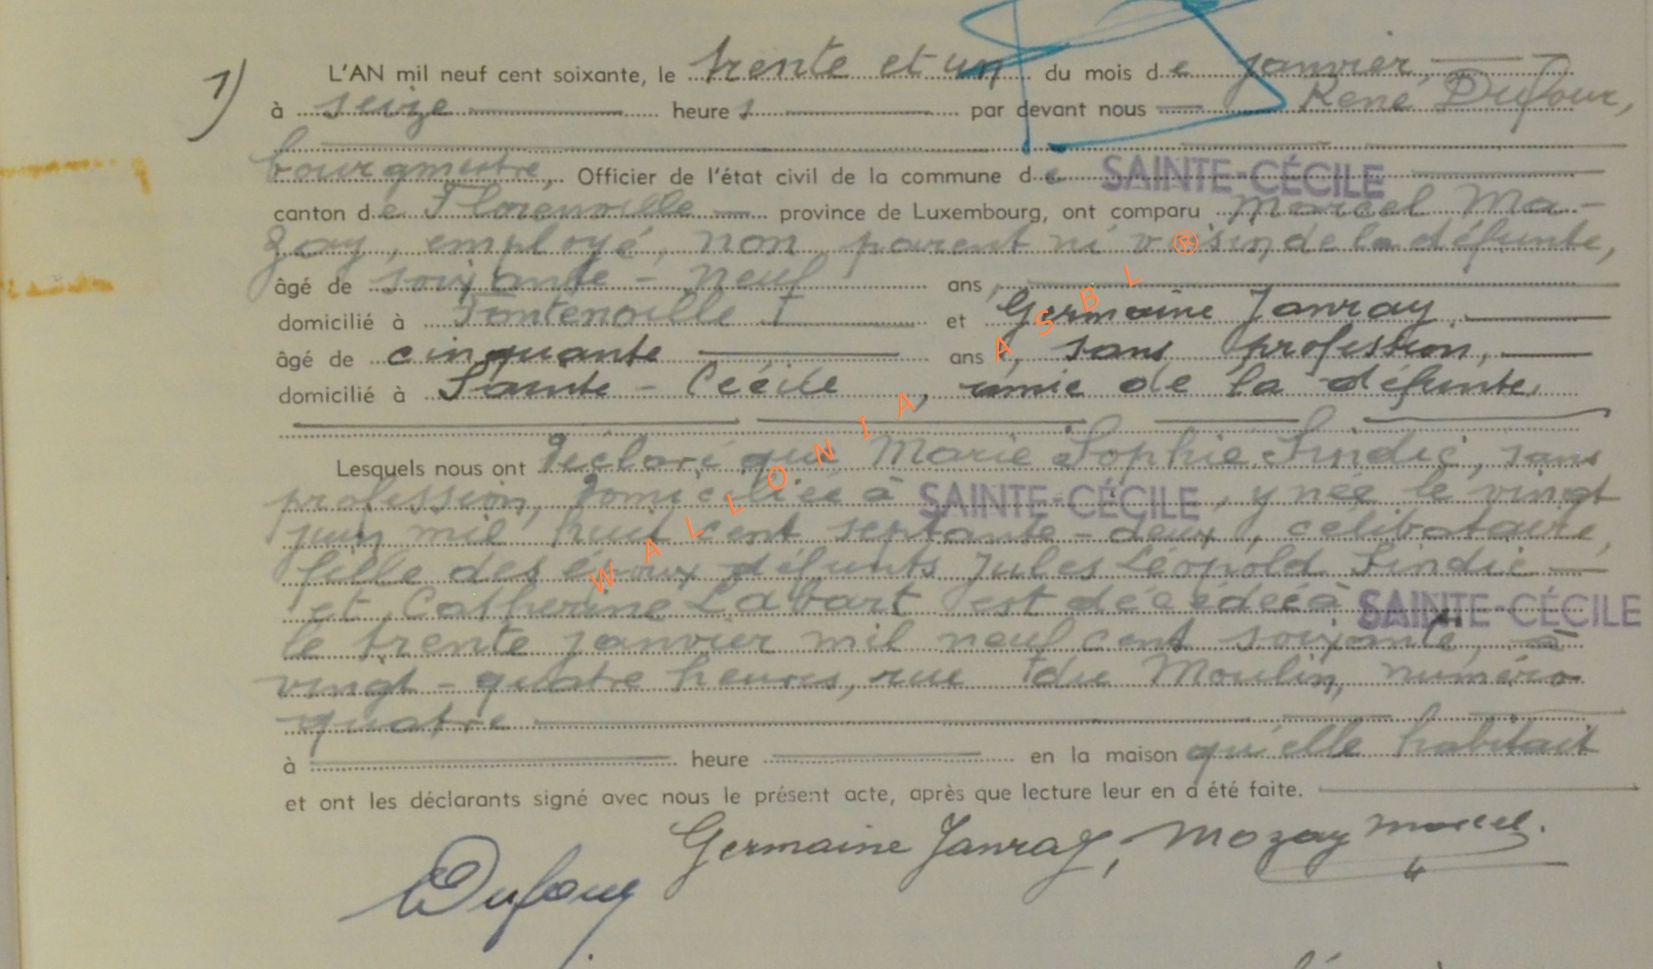 1) L'AN mil neuf cent soixante, le trente et un du mois de janvier
à seize heures par devant nous René Dufour,
bourgmestre, Officier de l'état civil de la commune de SAINTE-CÉCILE
canton de Florenville province de Luxembourg, ont comparu Marcel Ma-
zay, employé, non parent ni voisin de la défunte,
âgé de soixante-neuf ans,
domicilié à Fontenoille et Germaine Janray,
âgé de cinquante ans, sans profession,
domicilié à Sainte-Cécile, amie de la défunte,
Lesquels nous ont déclaré que Marie Sophie Sindic, sans
profession, domiciliée à SAINTE-CÉCILE, y née le vingt
juin mil huit cent septante-deux, célibataire,
fille des époux défunts Jules Léopold Sindic
et Catherine Labart est décédée à SAINTE-CÉCILE
le trente janvier mil neuf cent soixante, à
vingt-quatre heures, rue du Moulin, numéro
quatre
à heure en la maison qu'elle habitait
et ont les déclarants signé avec nous le présent acte, après que lecture leur en a été faite.
Germaine Janray, Mozay Marcel.
Dufour
WALLONIA ASBL ®